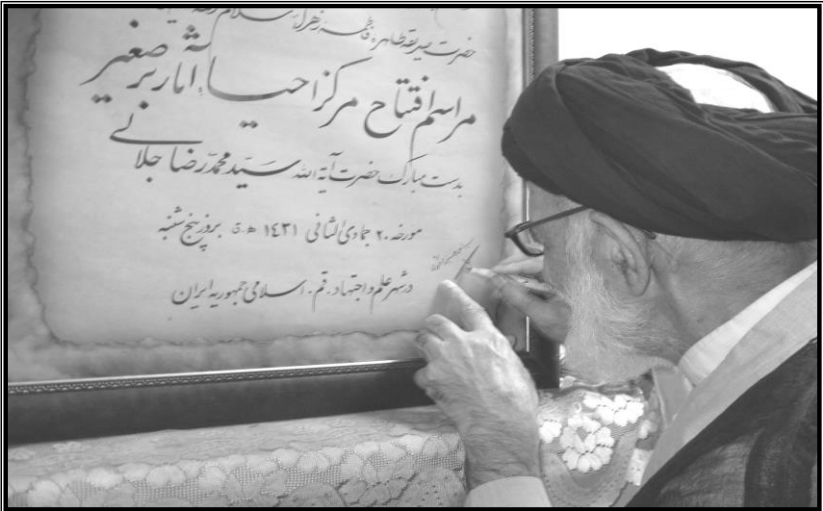 حضرت صدیقه طاهره فاطمه زهرا سلام
مراسم افتتاح مرکز احیاء آثار برصغیر
بدست مبارک حضرت آیة الله سید محمد رضا جلالی
مورخه ۲۰ جمادی الثانی ۱٤۳۱ ھ ق بروز پنج شنبه
در شهر علم و اجتهاد، قم، اسلامی جمهوریه ایران